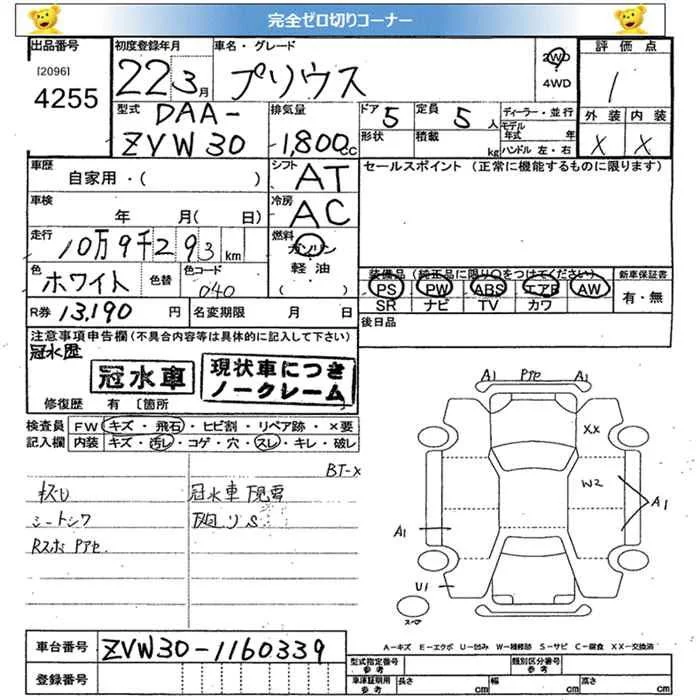 完全ゼロ切りコーナー
出品番号
[2096]
4255
初度登録年月
22 3月
車名・グレード
プリウス
2WD
4WD
評価点
1
外装
内装
X
X
型式
DAA-
ZVW30
排気量
1,800cc
ドア
5
形状
定員
5人
積載
kg
ディーラー・並行
モデル年式
年
ハンドル 左・右
車歴
自家用・( )
シフト
AT
セールスポイント (正常に機能するものに限ります)
車検
年 月( 日)
冷房
AC
走行
10万9千293km
燃料
ガソリン
軽油
( )
色
ホワイト
色替
色コード
040
装備品 (純正品に限り〇をつけてください)
PS PW ABS エアB AW
SR ナビ TV カワ
新車保証書
有・無
R券
13,190円
名変期限
月 日
後日品
注意事項申告欄(不具合内容等は具体的に記入して下さい)
冠水歴
冠水車
現状車につき
ノークレーム
修復歴 有 [箇所
検査員
記入欄
FW キズ・飛石・ヒビ割・リペア跡・×要
内装 キズ・汚レ・コゲ・穴・スレ・キレ・破レ
BT-X
シートシワ
冠水車
A1
Pアセ
A1
XX
W2
A1
A1
U1
スペア
車台番号
ZVW30-1160339
登録番号
A-キズ E-エクボ U-凹み W-補修跡 S-サビ C-腐食 XX-交換済
型式指定番号
参考
類別区分番号
参考
車庫証明用
参考
長さ
cm
幅
cm
高さ
cm